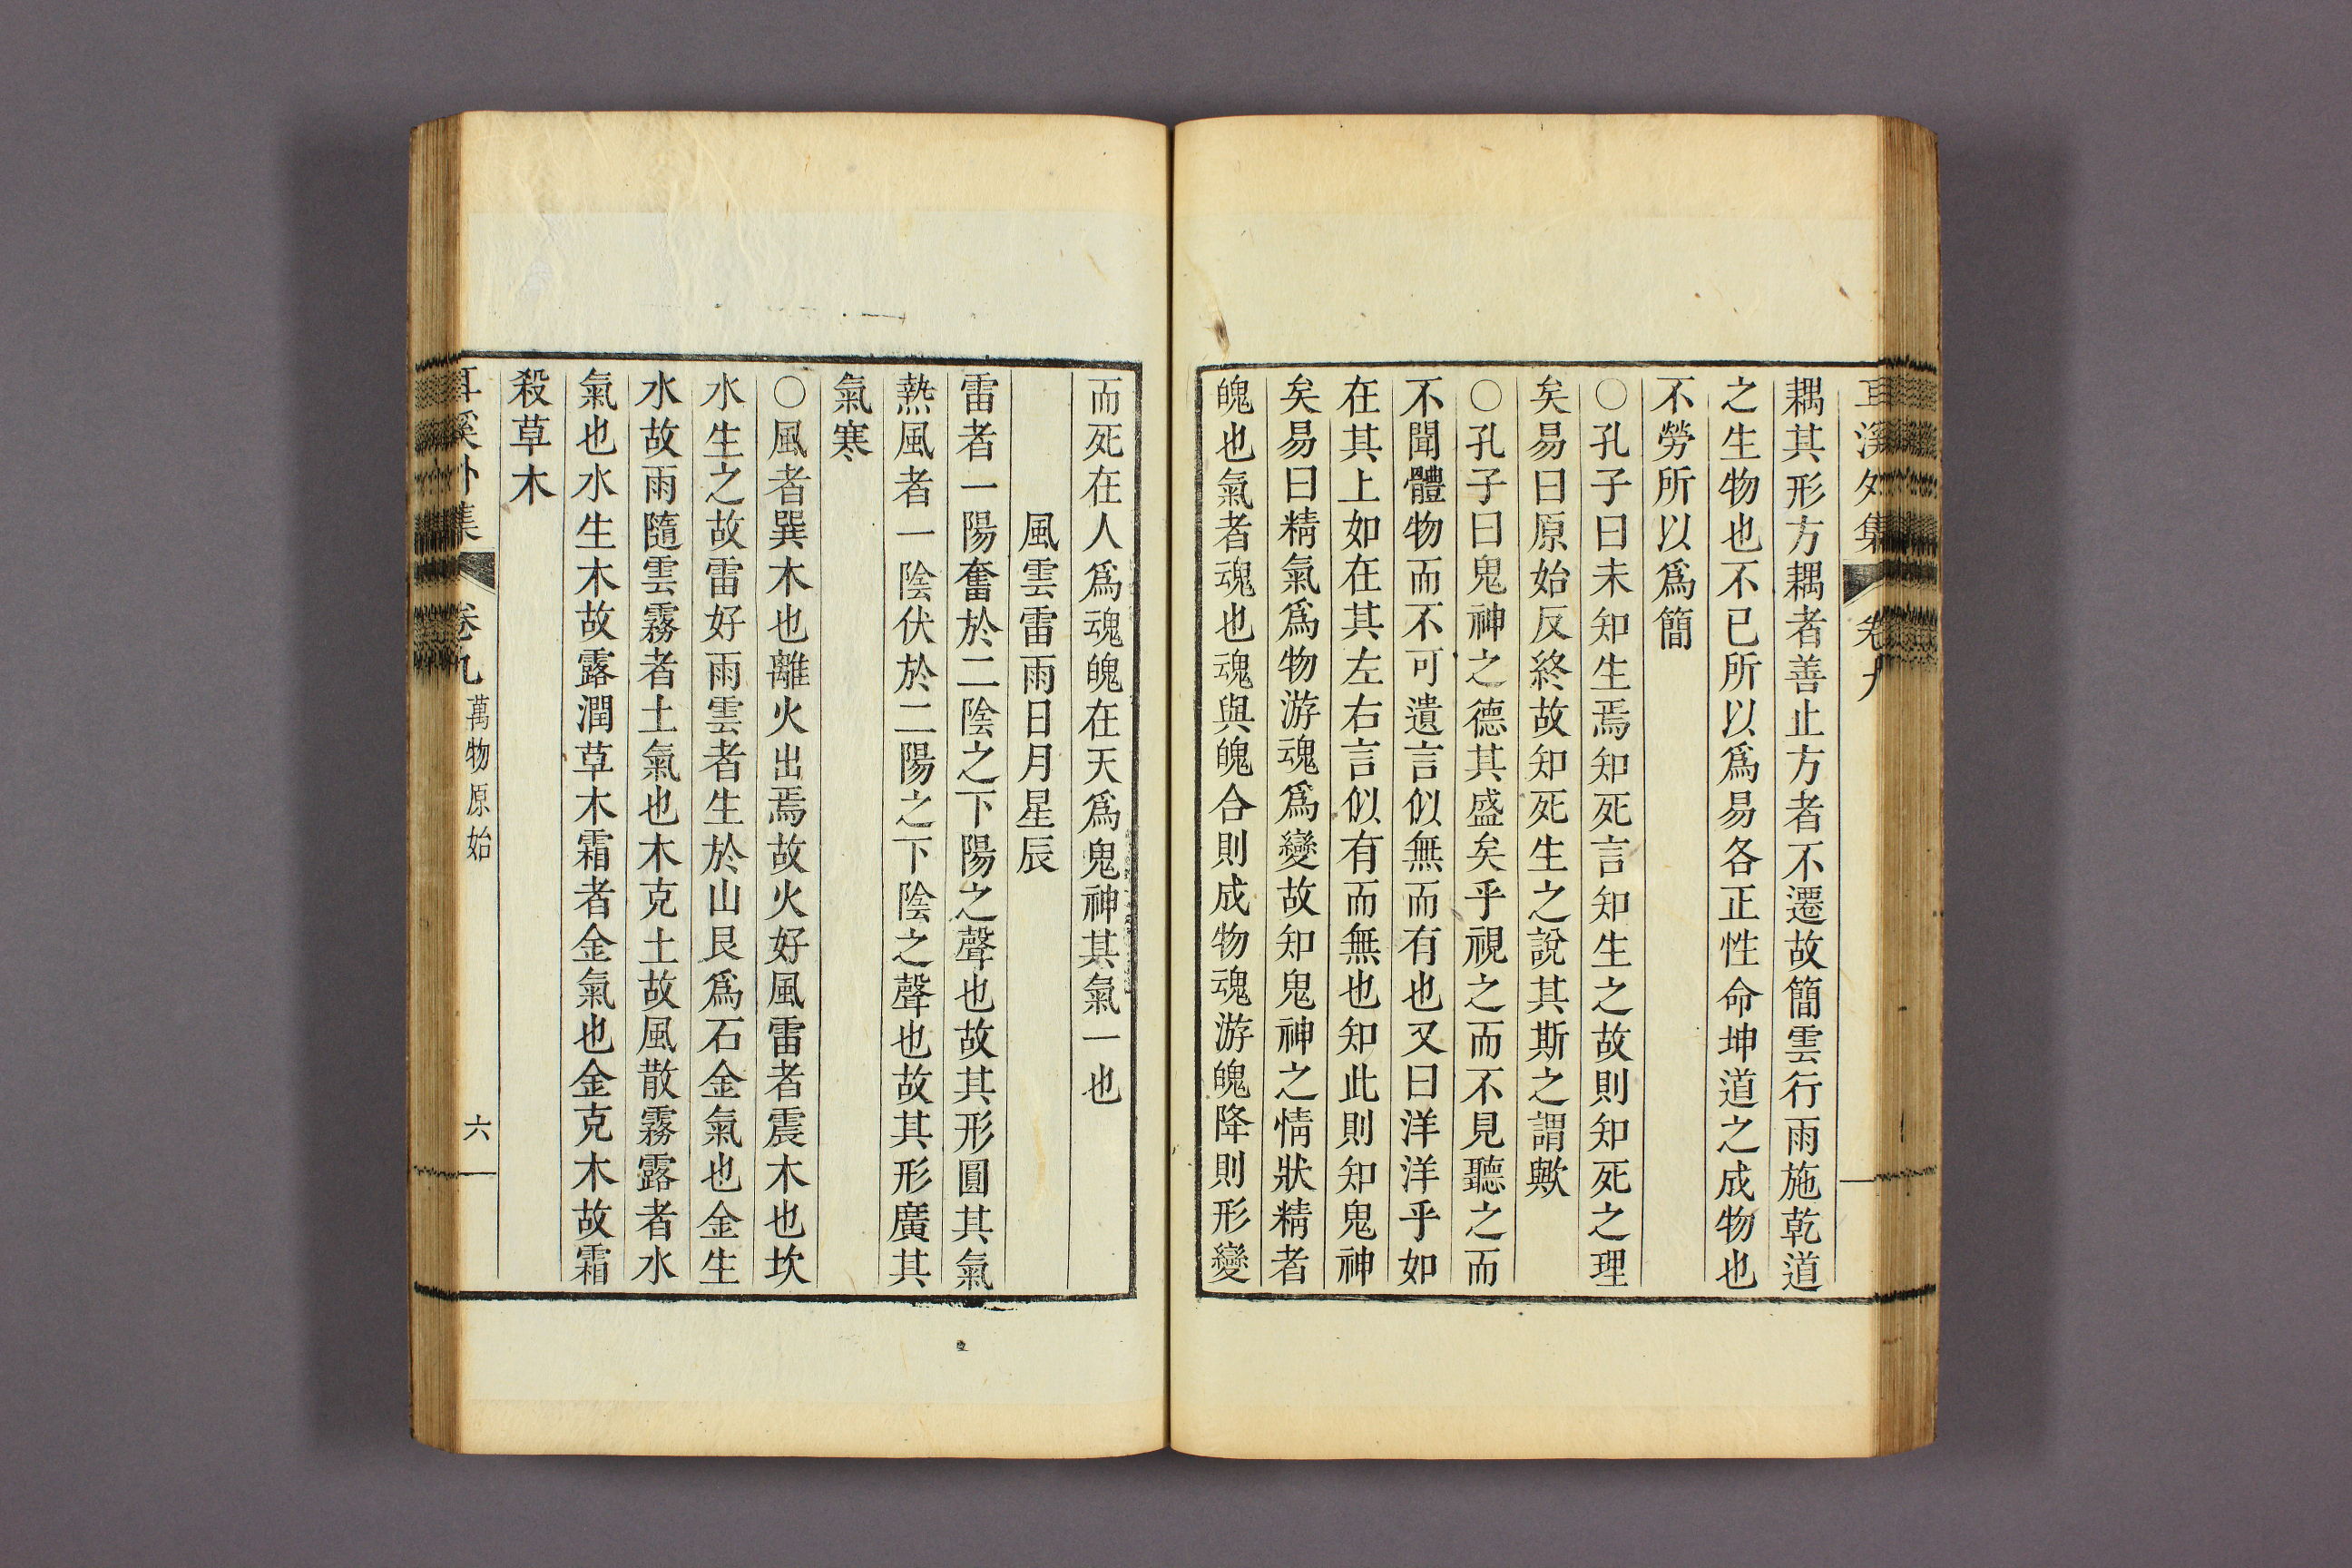 耳溪外集 卷九
耦其形方耦者善止方者不遷故簡雲行雨施乾道
之生物也不已所以爲易各正性命坤道之成物也
不勞所以爲簡
○孔子曰未知生焉知死言知生之故則知死之理
矣易曰原始反終故知死生之說其斯之謂歟
○孔子曰鬼神之德其盛矣乎視之而不見聽之而
不聞體物而不可遺言似無而有也又曰洋洋乎如
在其上如在其左右言似有而無也知此則知鬼神
矣易曰精氣爲物游魂爲變故知鬼神之情狀精者
魄也氣者魂也魂與魄合則成物魂游魄降則形變
而死在人爲魂魄在天爲鬼神其氣一也
風雲雷雨日月星辰
雷者一陽奮於二陰之下陽之聲也故其形圓其氣
熱風者一陰伏於二陽之下陰之聲也故其形廣其
氣寒
○風者巽木也離火出焉故火好風雷者震木也坎
水生之故雷好雨雲者生於山艮爲石金氣也金生
水故雨隨雲霧者土氣也木克土故風散霧露者水
氣也水生木故露潤草木霜者金氣也金克木故霜
殺草木
耳溪外集 卷九 萬物原始 六